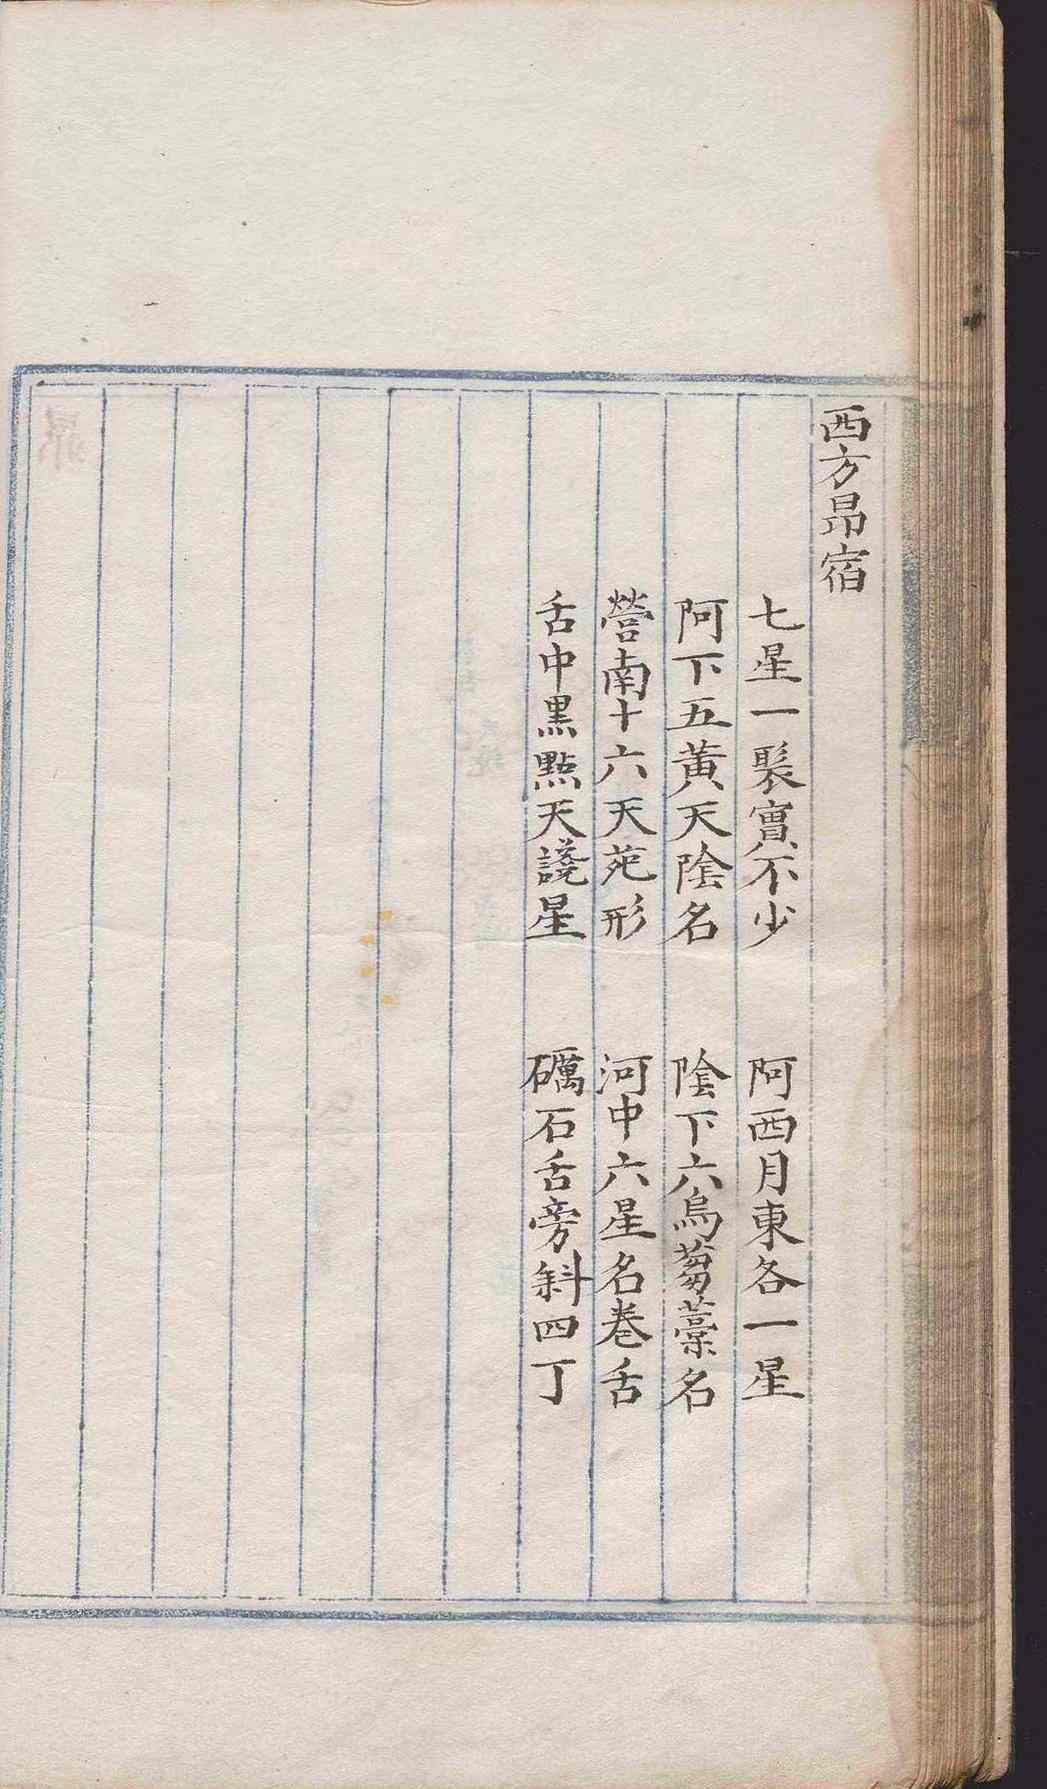 西方昴宿
七星一聚實不少　阿西月東各一星
阿下五黃天陰名　陰下六烏芻藁名
營南十六天苑形　河中六星名卷舌
舌中黑點天讒星　礪石舌旁斜四丁